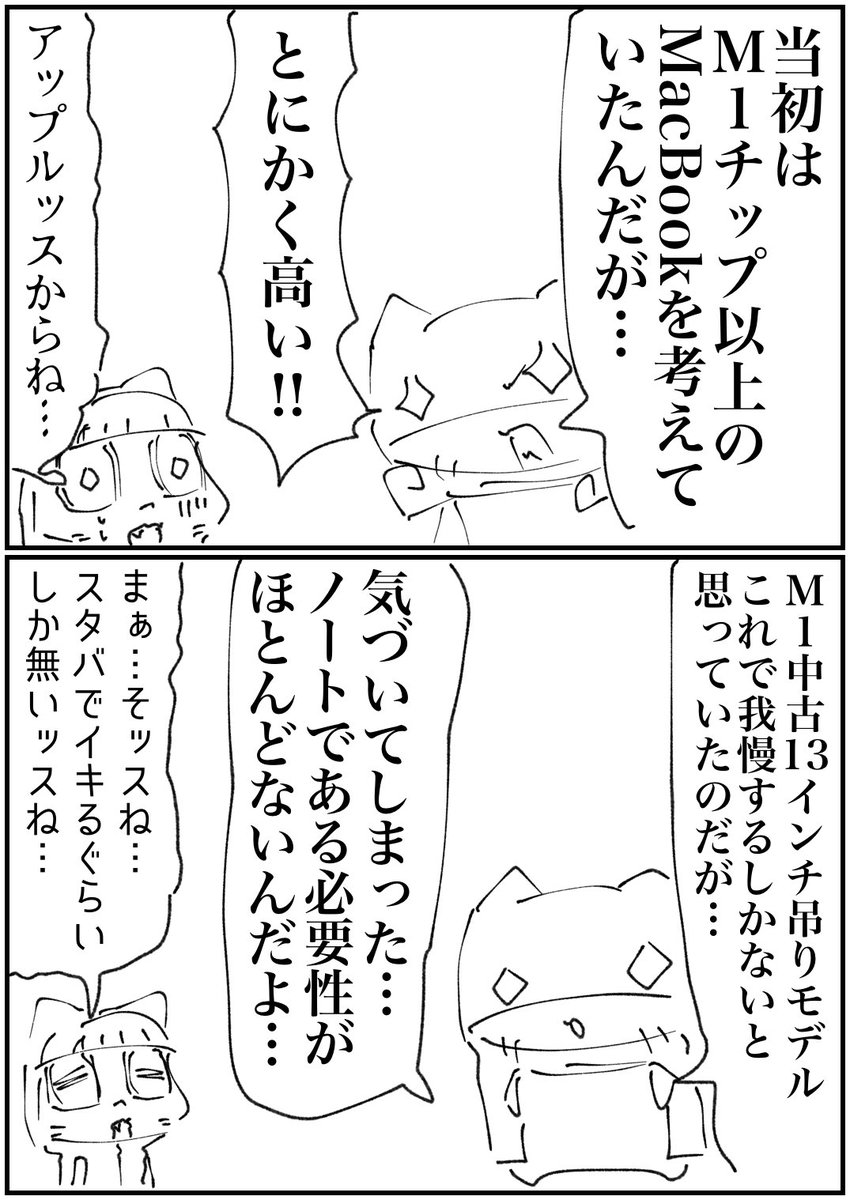 当初は
M1チップ以上の
MacBookを考えて
いたんだが…
とにかく高い!!
アップルッスからね…
M1中古13インチ吊りモデル
これで我慢するしかないと
思っていたのだが…
気づいてしまった…
ノートである必要性が
ほとんどないんだよ…
まぁ…そッスね…
スタバでイキるぐらい
しか無いッスね…